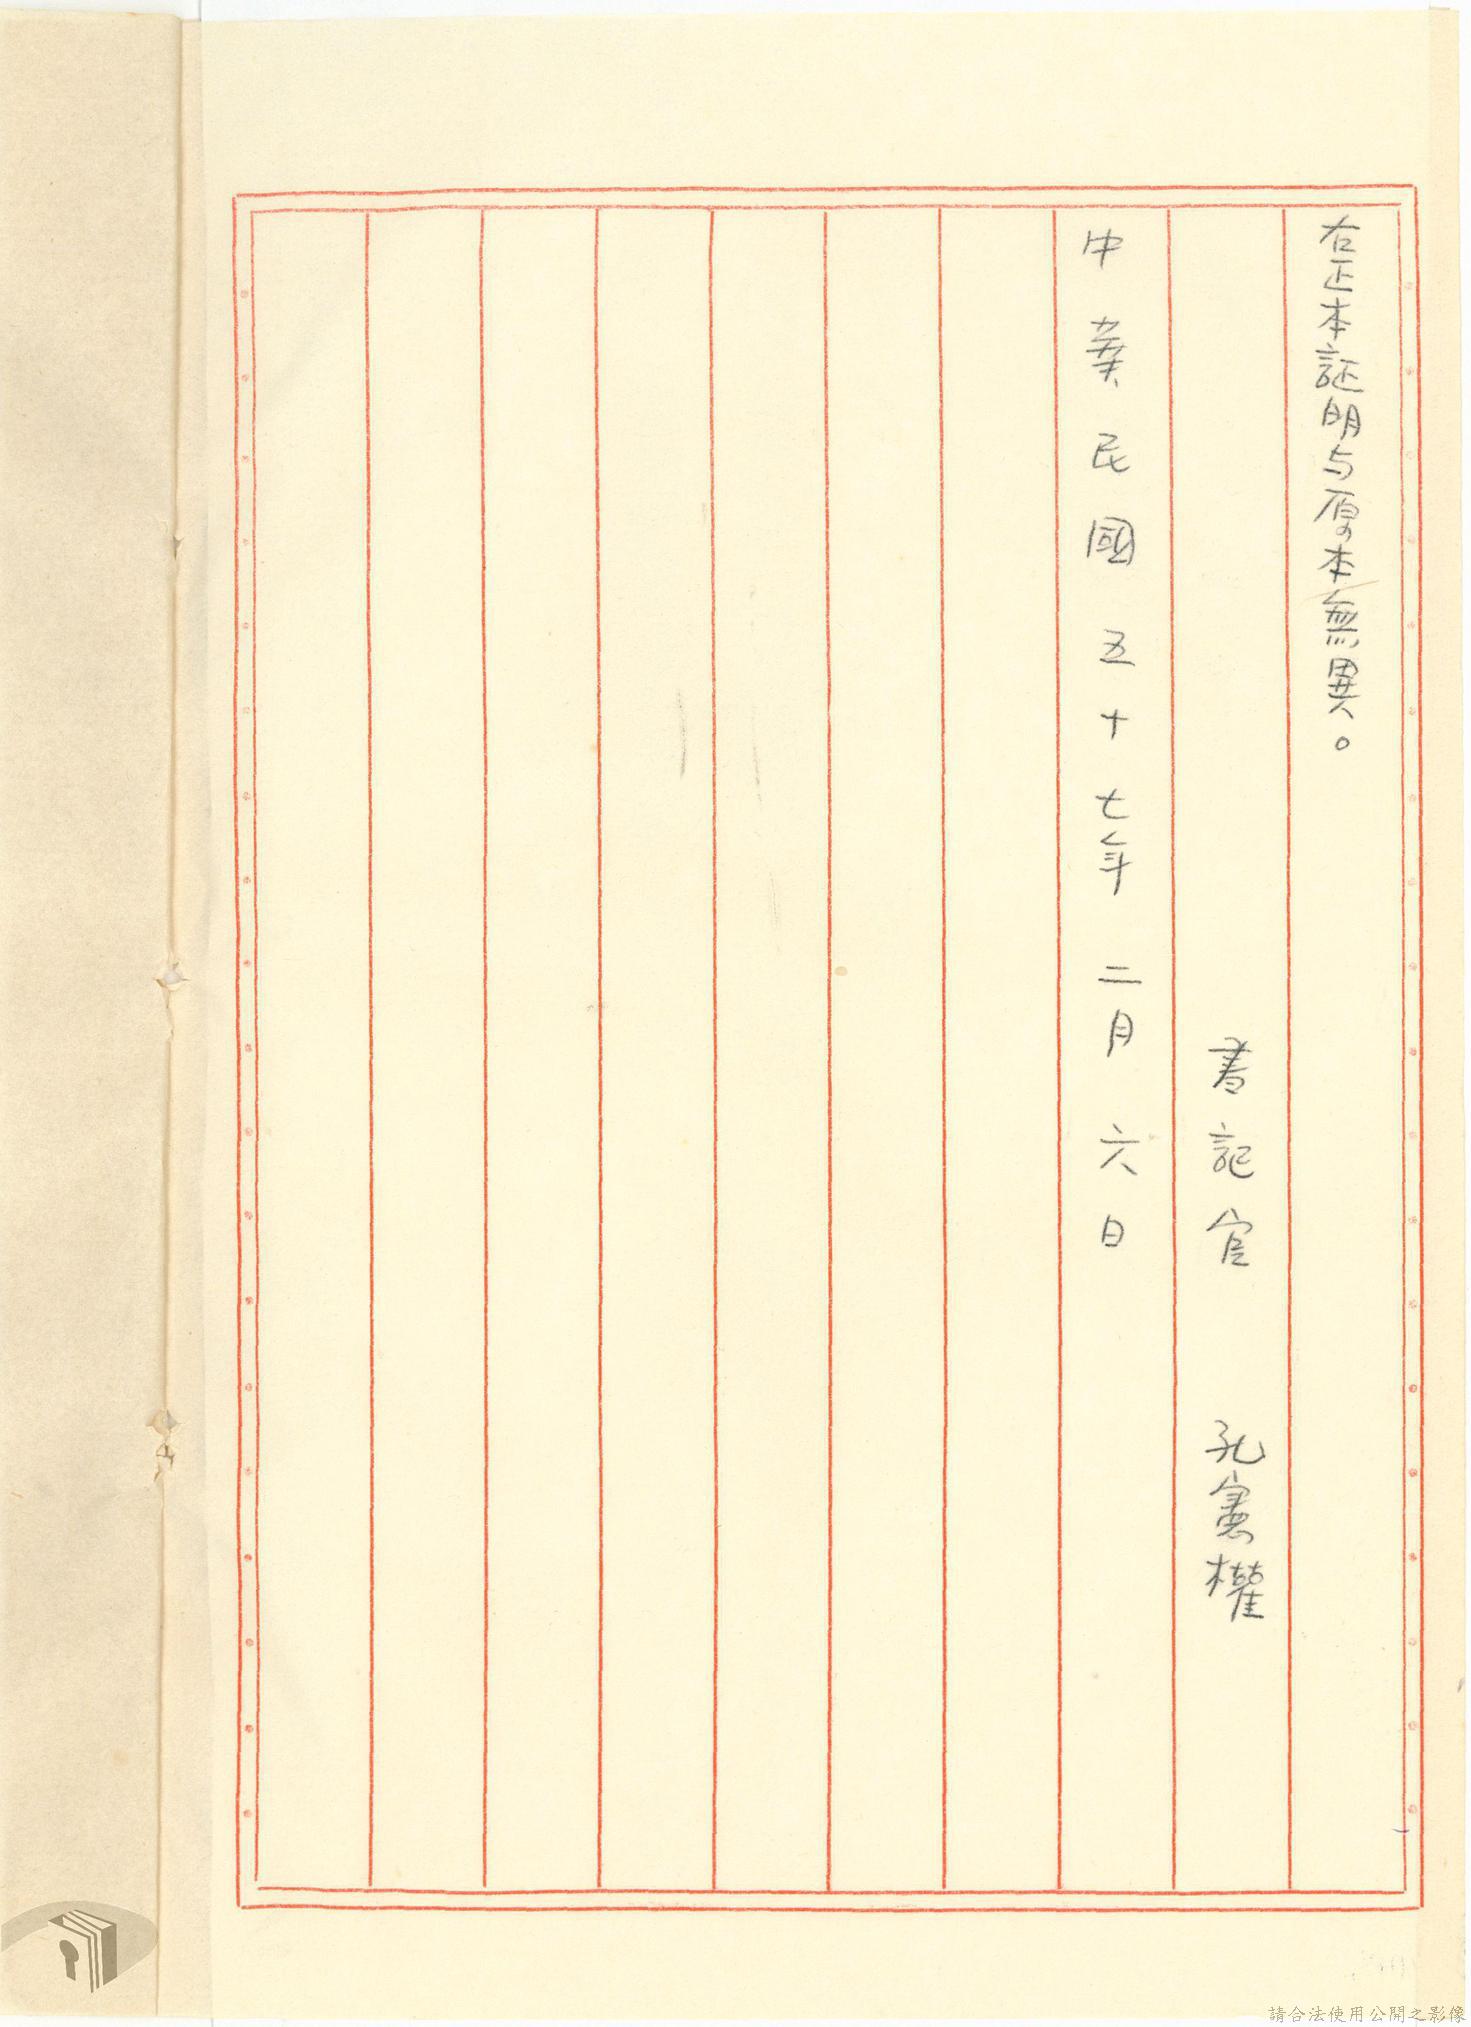 右正本証明与原本無異。
書記官 孔憲權
中華民國五十七年二月六日
請合法使用公開之影像